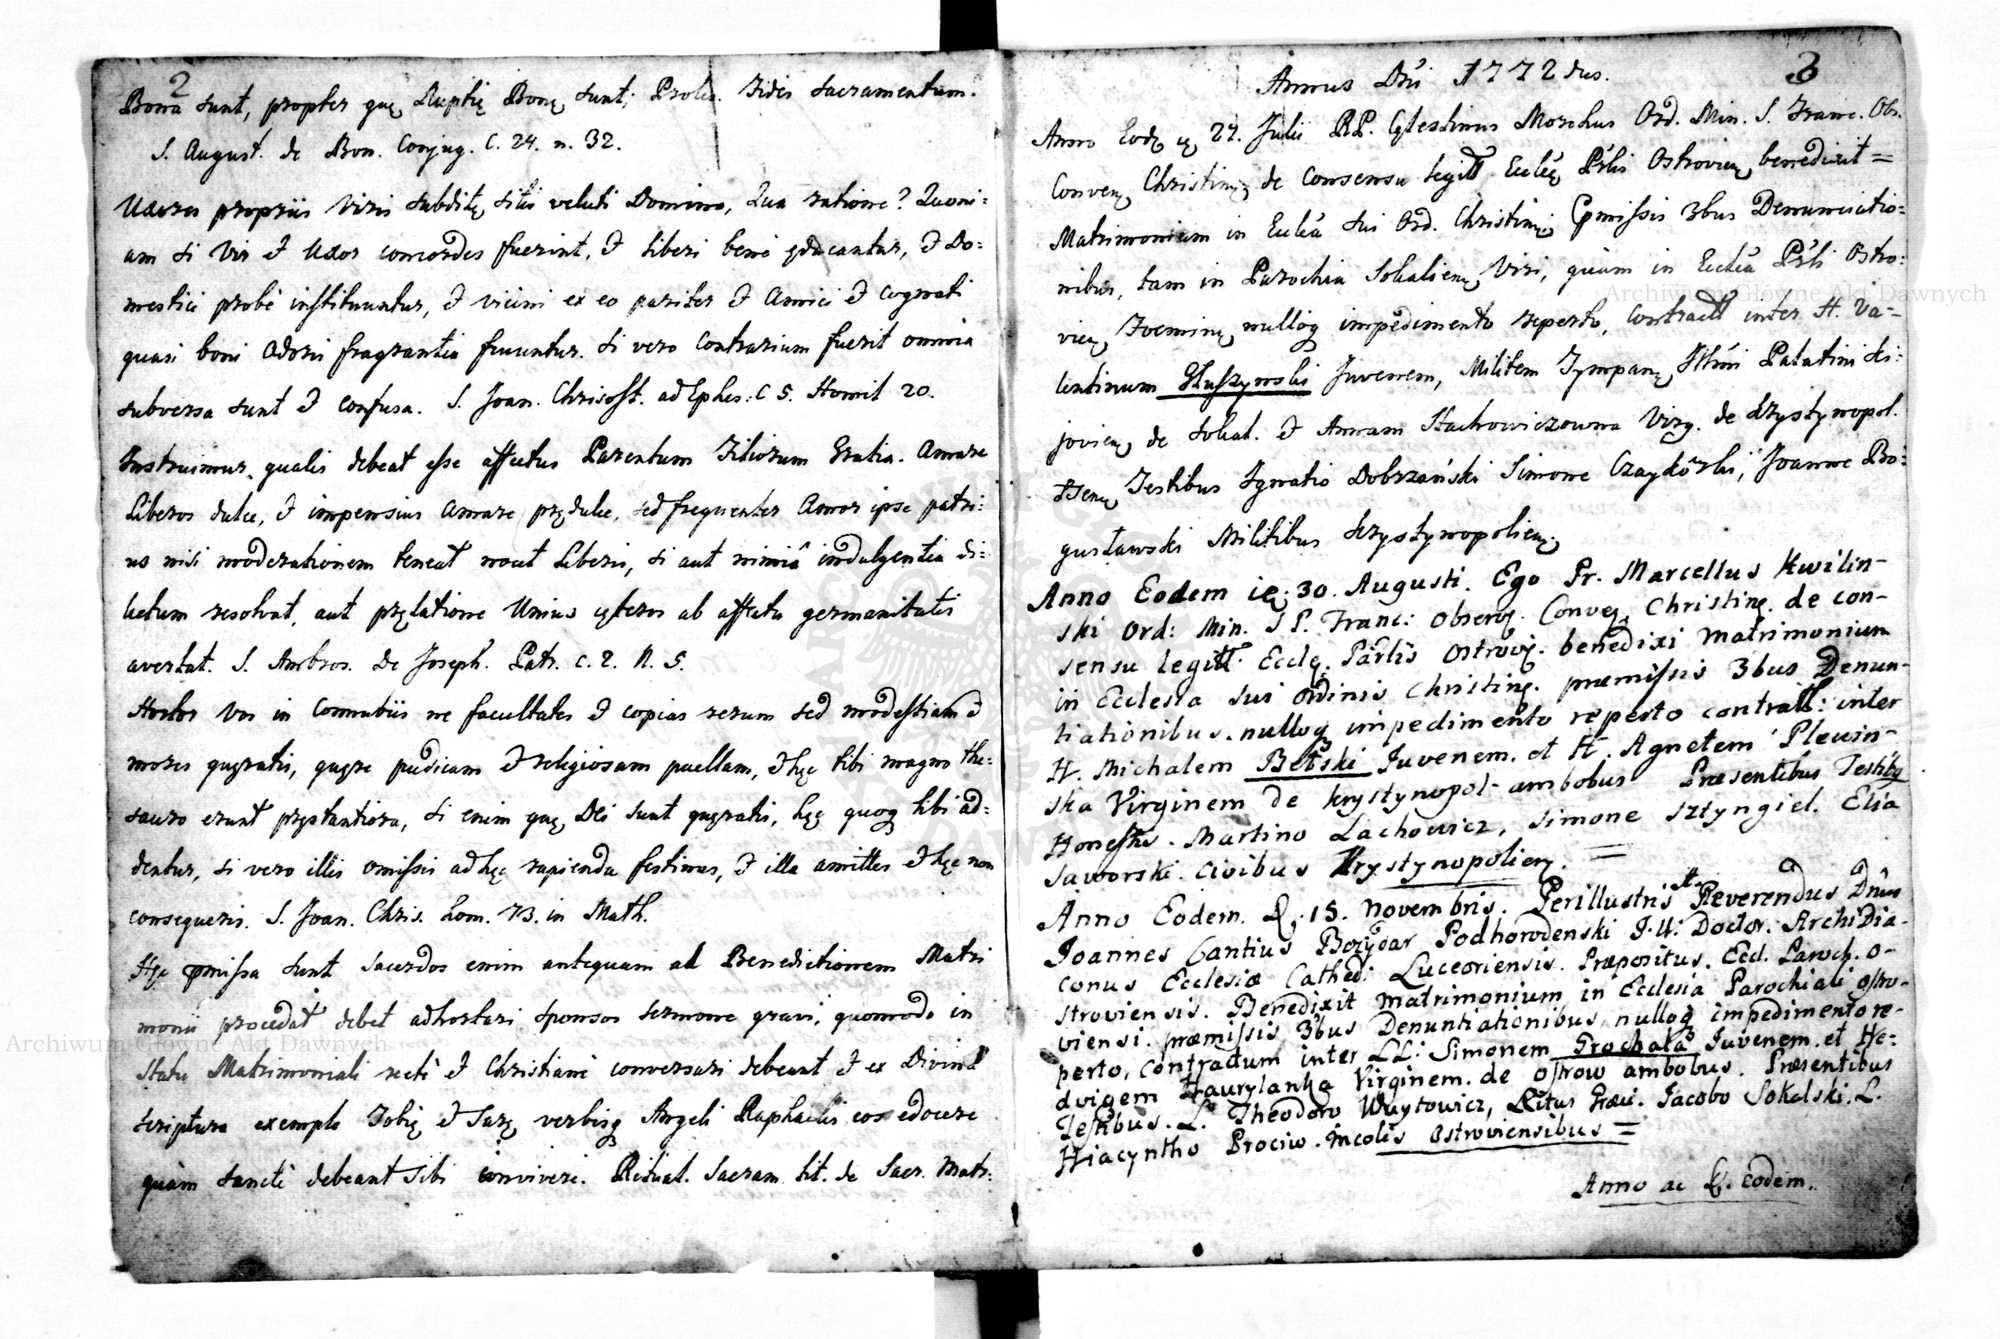 2
Bona sunt, propter quę Nuptię Bonę sunt; Proles. Fides Sacramentum.
S. August. de Bon. Conjug. C. 24. n. 32.
Uxores propriis Viris subditę sitis veluti Domino, Qua ratione? Quoni=
am si Vir et Uxor concordes fuerint, et Liberi bene educantur, et Do=
mestici probè instituuntur, et vicini ex eo pariter et Amici et Cognati
quasi boni Odoris fragrantia fruuntur. Si vero Contrarium fuerit omnia
subversa sunt et confusa. S. Joan. Chrisost. ad Ephes: C 5. Homil 20.
Instruimur, qualis debeat esse affectus Parentum Filiorum Gratia. Amare
Liberos dulce, et impensius amare prędulce, sed frequenter Amor ipse patri=
us nisi moderationem teneat nocet Liberis, si aut nimiâ indulgentia di=
lectum resolvat, aut pręlatione Unius cęteros ab affectu germanitatis
avertat. S. Ambros. De Joseph. Patr. C. 2. N. 5.
Hortor Vos in Connubiis ne facultates et copias rerum sed modestiam et
mores quęratis, quęre pudicam et religiosam puellam, et hęc tibi magno the=
sauro erunt pręstantiora, si enim quę Dei sunt quęratis, hęc quoq tibi ad=
dentur, si vero illis omissis ad hęc rapienda festinas, et illa amittes et hęc non
consequeris. S. Joan. Chris. hom. 73. in Math.
Hęc pmissa sunt Sacerdos enim antequam ad Benedictionem Matri
monii procedat debet adhortari Sponsos sermone gravi, quomodo in
Statu Matrimoniali rectè et Christianè conversari debeant et ex Divinâ
Scriptura exemplo Tobię et Sarę verbisq Angeli Raphaelis eos edocere
quàm sanctè debeant Sibi convivere. Ritual. Sacram. tit. de Sacr. Matr:
3
Annus Dni 1772dus.
Anno Eod ę 27. Julii RP. Cęlestinus Morchus Ord. Min. S. Franc. Obs.
Conven Christinę de Consensu Legitt Ecclę Prlis Ostrovien benedixit =
Matrimonium in Ecclâ Sui Ord. Christinę pmissis 3bus Denunciatio=
nibus, tam in Parochia Sokalien Viri, quàm in Ecclâ Prli Ostro=
vien Foeminę nulloq impedimento reperto, Contractt inter H. Va=
lentinum Głuszynski Juvenem, Militem Tympanę Illmi Palatini Ki=
jovien de Sokal. et Annam Stachowiczowna Virg. de Krystynopol.
Testibus Ignatio Dobrzański Simone Czaykowski, Joanne Bo=
gusławski Militibus Krystynopolien
Anno Eodem ię. 30. Augusti. Ego Fr. Marcellus Kwilin-
ski Ord: Min. S P. Franc: Observ. Conve. Christinę. de con-
sensu legitt. Ecclę. Parlis Ostrovi. benedixi matrimonium
in Ecclesia sui Ordinis Christinę. præmissis 3bus Denun-
tiationibus. nulloq impedimento reperto contratt: inter
H. Michalem Bełski Juvenem. et H. Agnetem Pleusin-
ska Virginem de Krystynopol- ambobus Præsentibus Testibq
Honestis. Martino Lachowicz, Simone Sztyngiel. Elia
Jaworski. Civibus Krystynopolien. =
Anno Eodem. D. 15. Novembris. Perillustris et Reverendus Dnus
Joannes Cantius Bożydar Podhorodenski J. U: Doctor. Archidia-
conus Ecclesiæ Cathed: Luceoriensis. Præpositus. Eccl. Paroch. O-
stroviensis. Benedixit matrimonium in Ecclesia Parochiali Ostro-
viensi. præmissis 3bus Denuntiationibus, nulloq impedimento re-
perto, contractum inter LL: Simonem Prochała Juvenem. et He-
dvigem Haurylanka Virginem. de Ostrow ambobus. Præsentibus
Testibus. L. Theodoro Woytowicz, Ritus Græci. Jacobo Sokalski. L.
Hiacyntho Prociw. Incolis Ostroviensibus =
Anno ac D. Eodem.
Archiwum Główne Akt Dawnych
Archiwum Główne Akt Dawnych